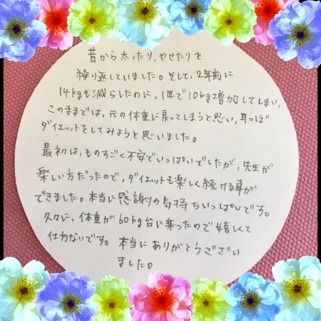 昔から太ったり、やせたりを
繰り返していました。そして、2年前に
14kgも減らしたのに、1年で10kg増加してしまい、
このままでは、元の体重に戻ってしまうと思い、耳つぼ
ダイエットをしてみようと思いました。
最初は、ものすごく不安でいっぱいでしたが、先生が
楽しい方だったので、ダイエットも楽しく続ける事が
できました。本当に感謝の気持ちいっぱいです。
久々に、体重が60kg台に乗ったので嬉しくて
仕方ないです。本当にありがとうござい
ました。